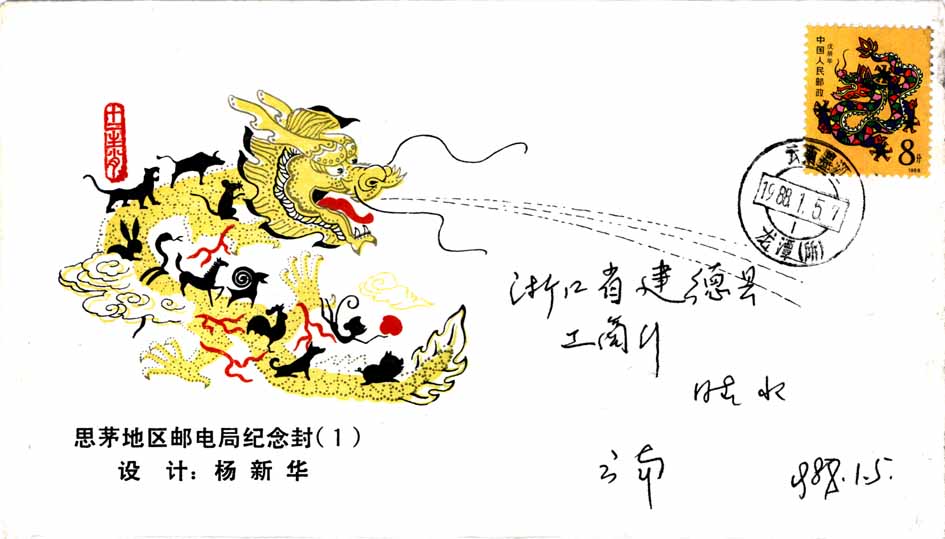 戊辰年
中国人民邮政
8分
1988
十二生肖
云南墨江
1988.1.5.
龙潭(所)
浙江省建德县
工商
云南
1988.1.5.
思茅地区邮电局纪念封(1)
设 计: 杨 新 华